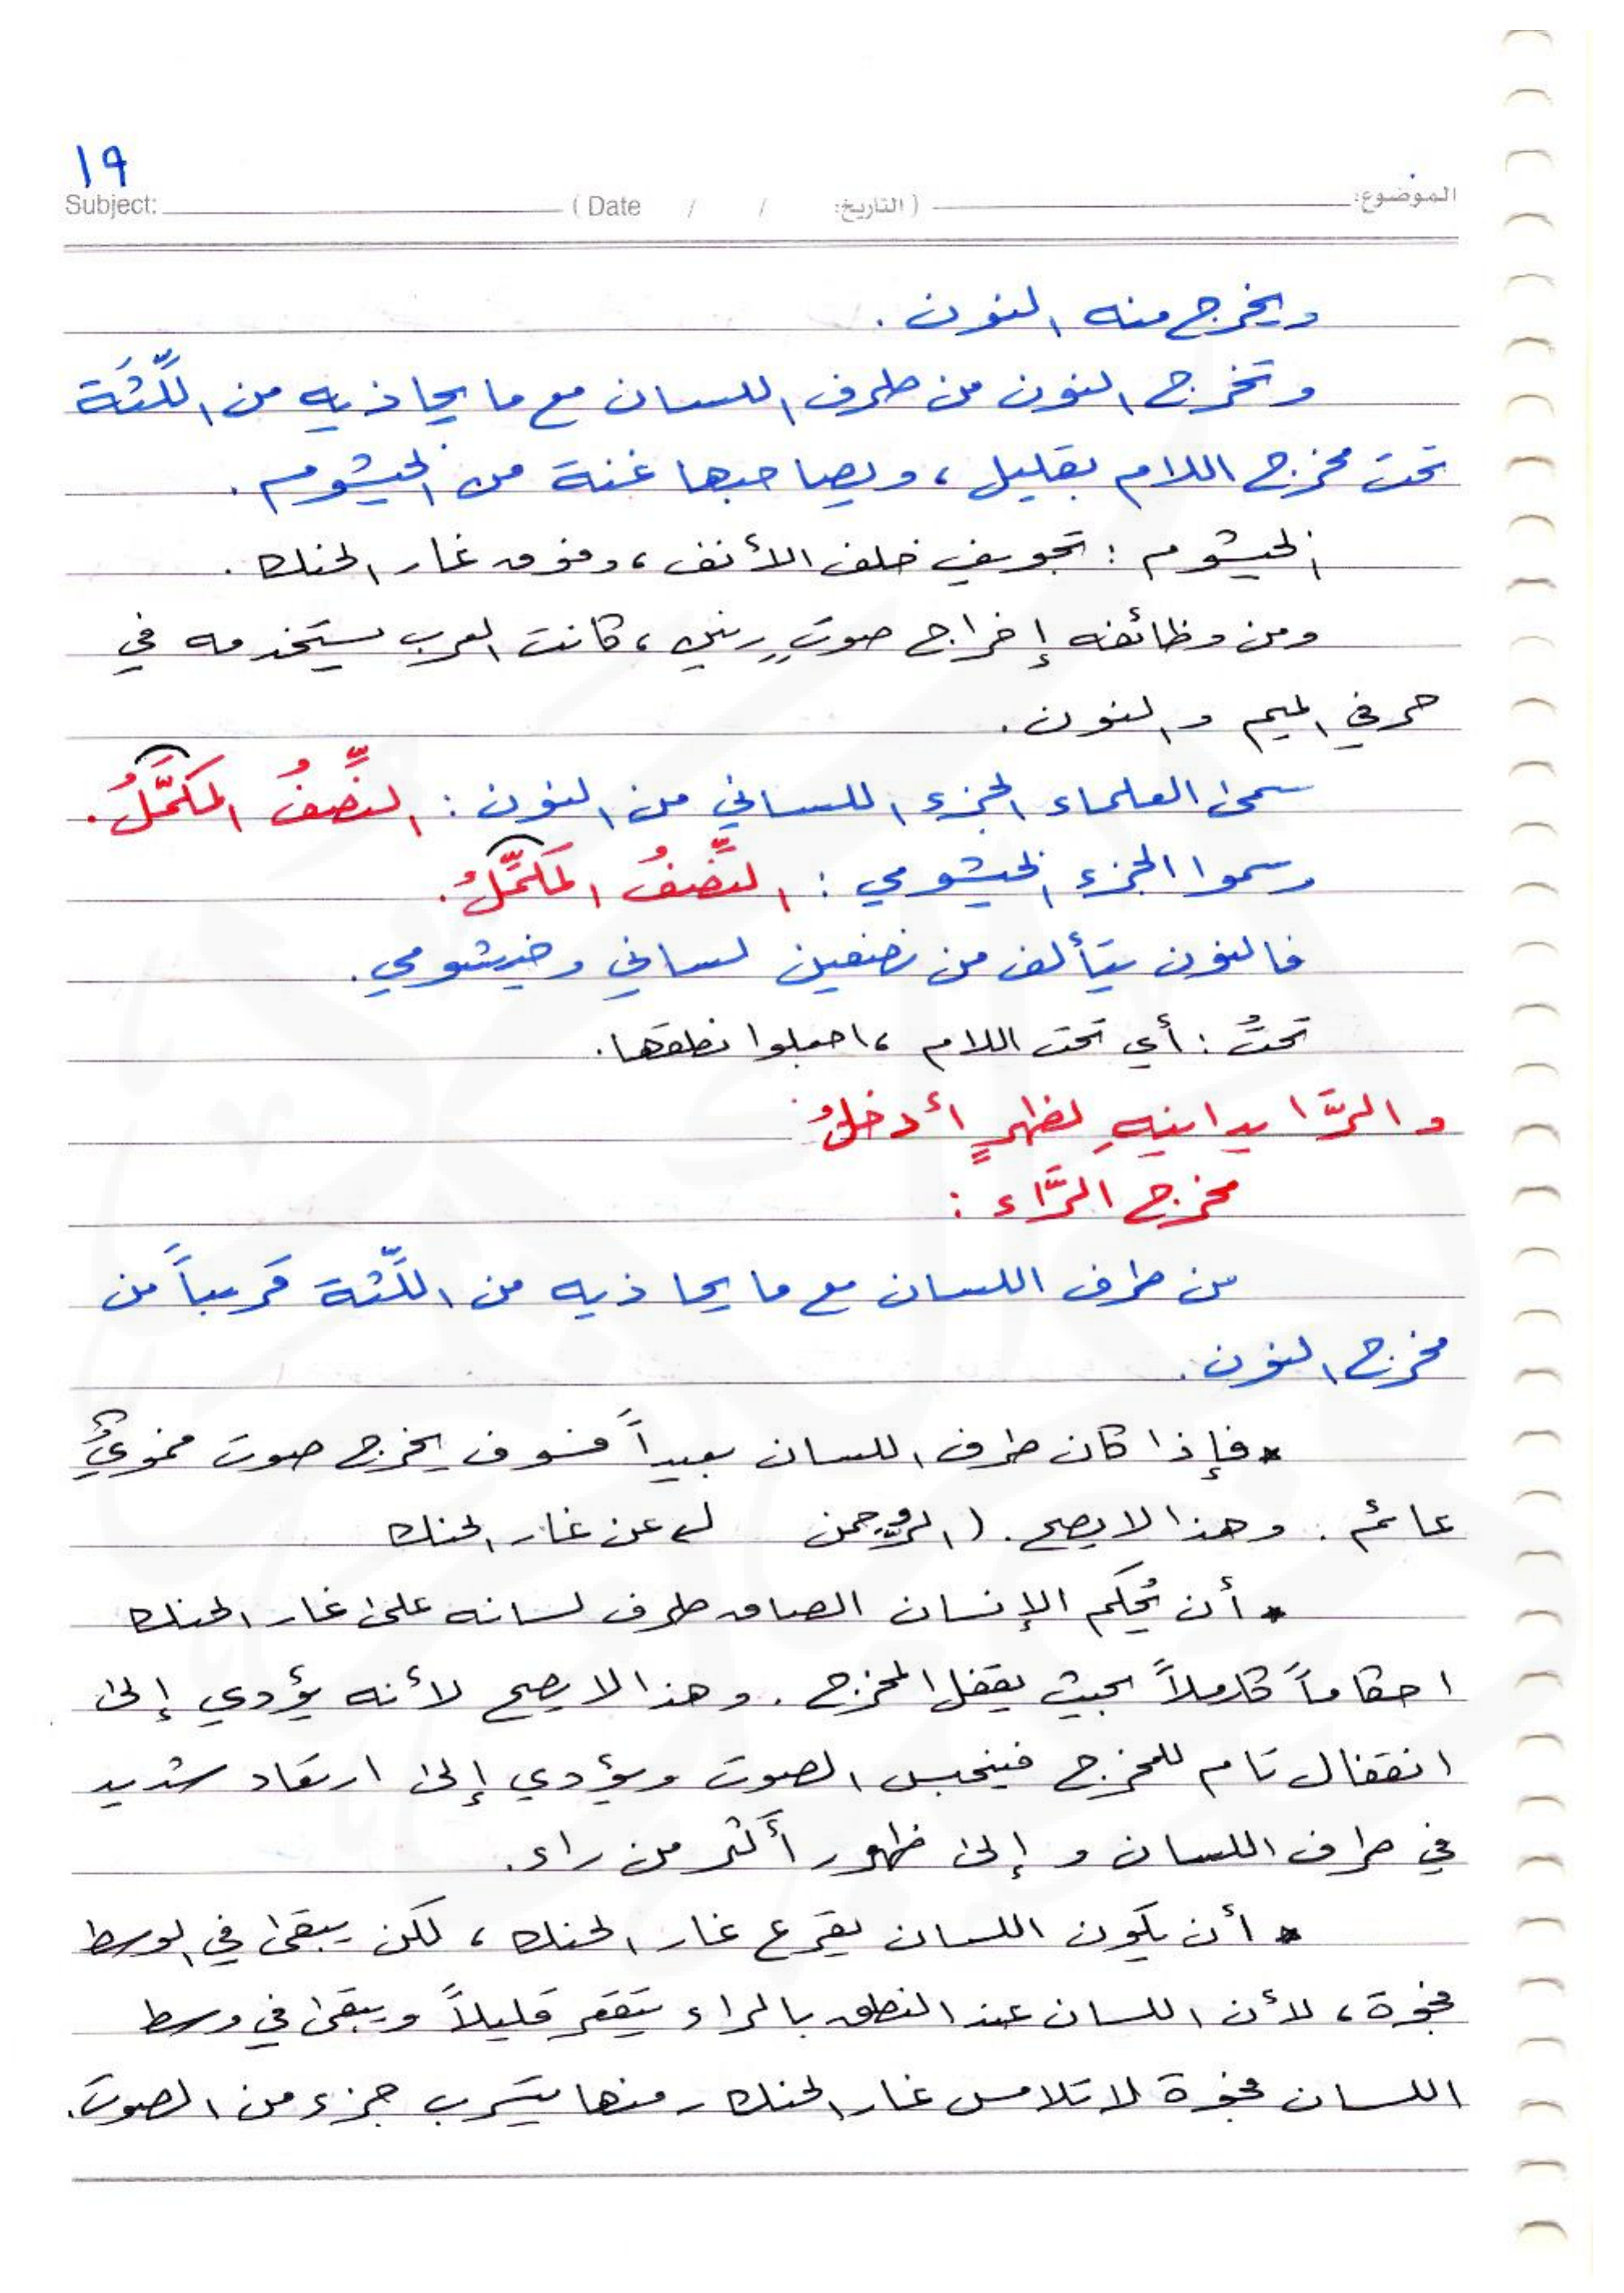 ١٩
Subject: ( Date / / التاريخ: ) الموضوع:
ويخرج منه النون .
وتخرج النون من طرف اللسان مع ما يحاذيه من اللِّثَة
تحت مخرج اللام بقليل ، ويصاحبها غنة من الخيشوم .
الخيشوم : تجويف خلف الأنف ، وفوق غار الحنك .
ومن وظائفه إخراج صوتٍ رنيني ، كانت العرب يستخدمه في
حرفي الميم والنون .
سمى العلماء الجزء اللساني من النون : النِّصفُ المُكَمَّلُ .
وسموا الجزء الخيشومي : النِّصْفُ المُكَمِّلُ .
فالنون يتألف من نصفين لساني وخيشومي .
تحتُ : أي تحت اللام ، اجعلوا نطقها .
والرَّا يدانيهِ لظهرٍ أدخلُ
مخرج الرَّاء :
من طرف اللسان مع ما يحاذيه من اللِّثة قريباً من
مخرج النون .
* فإذا كان طرف اللسان بعيداً فسوف يخرج صوت
عائم . وهذا لا يصح . ( الرحمن عن غار الحنك
* أن يُحكم الإنسان الصاق طرف لسانه على غار الحنك
احكاماً كاملاً بحيث يقفل المخرج . وهذا لا يصح لأنه يؤدي إلى
انقفال تام للمخرج فينحبس الصوت ويؤدي إلى ارتعاد شديد
في طرف اللسان و إلى ظهور أكثر من راء .
* أن يكون اللسان يقرع غار الحنك ، لكن يبقى في الوسط
فجوة ، لأن اللسان عند النطق بالراء يتقعر قليلاً ويبقى في وسط
اللسان فجوة لا تلامس غار الحنك ومنها يتسرب جزء من الصوت .